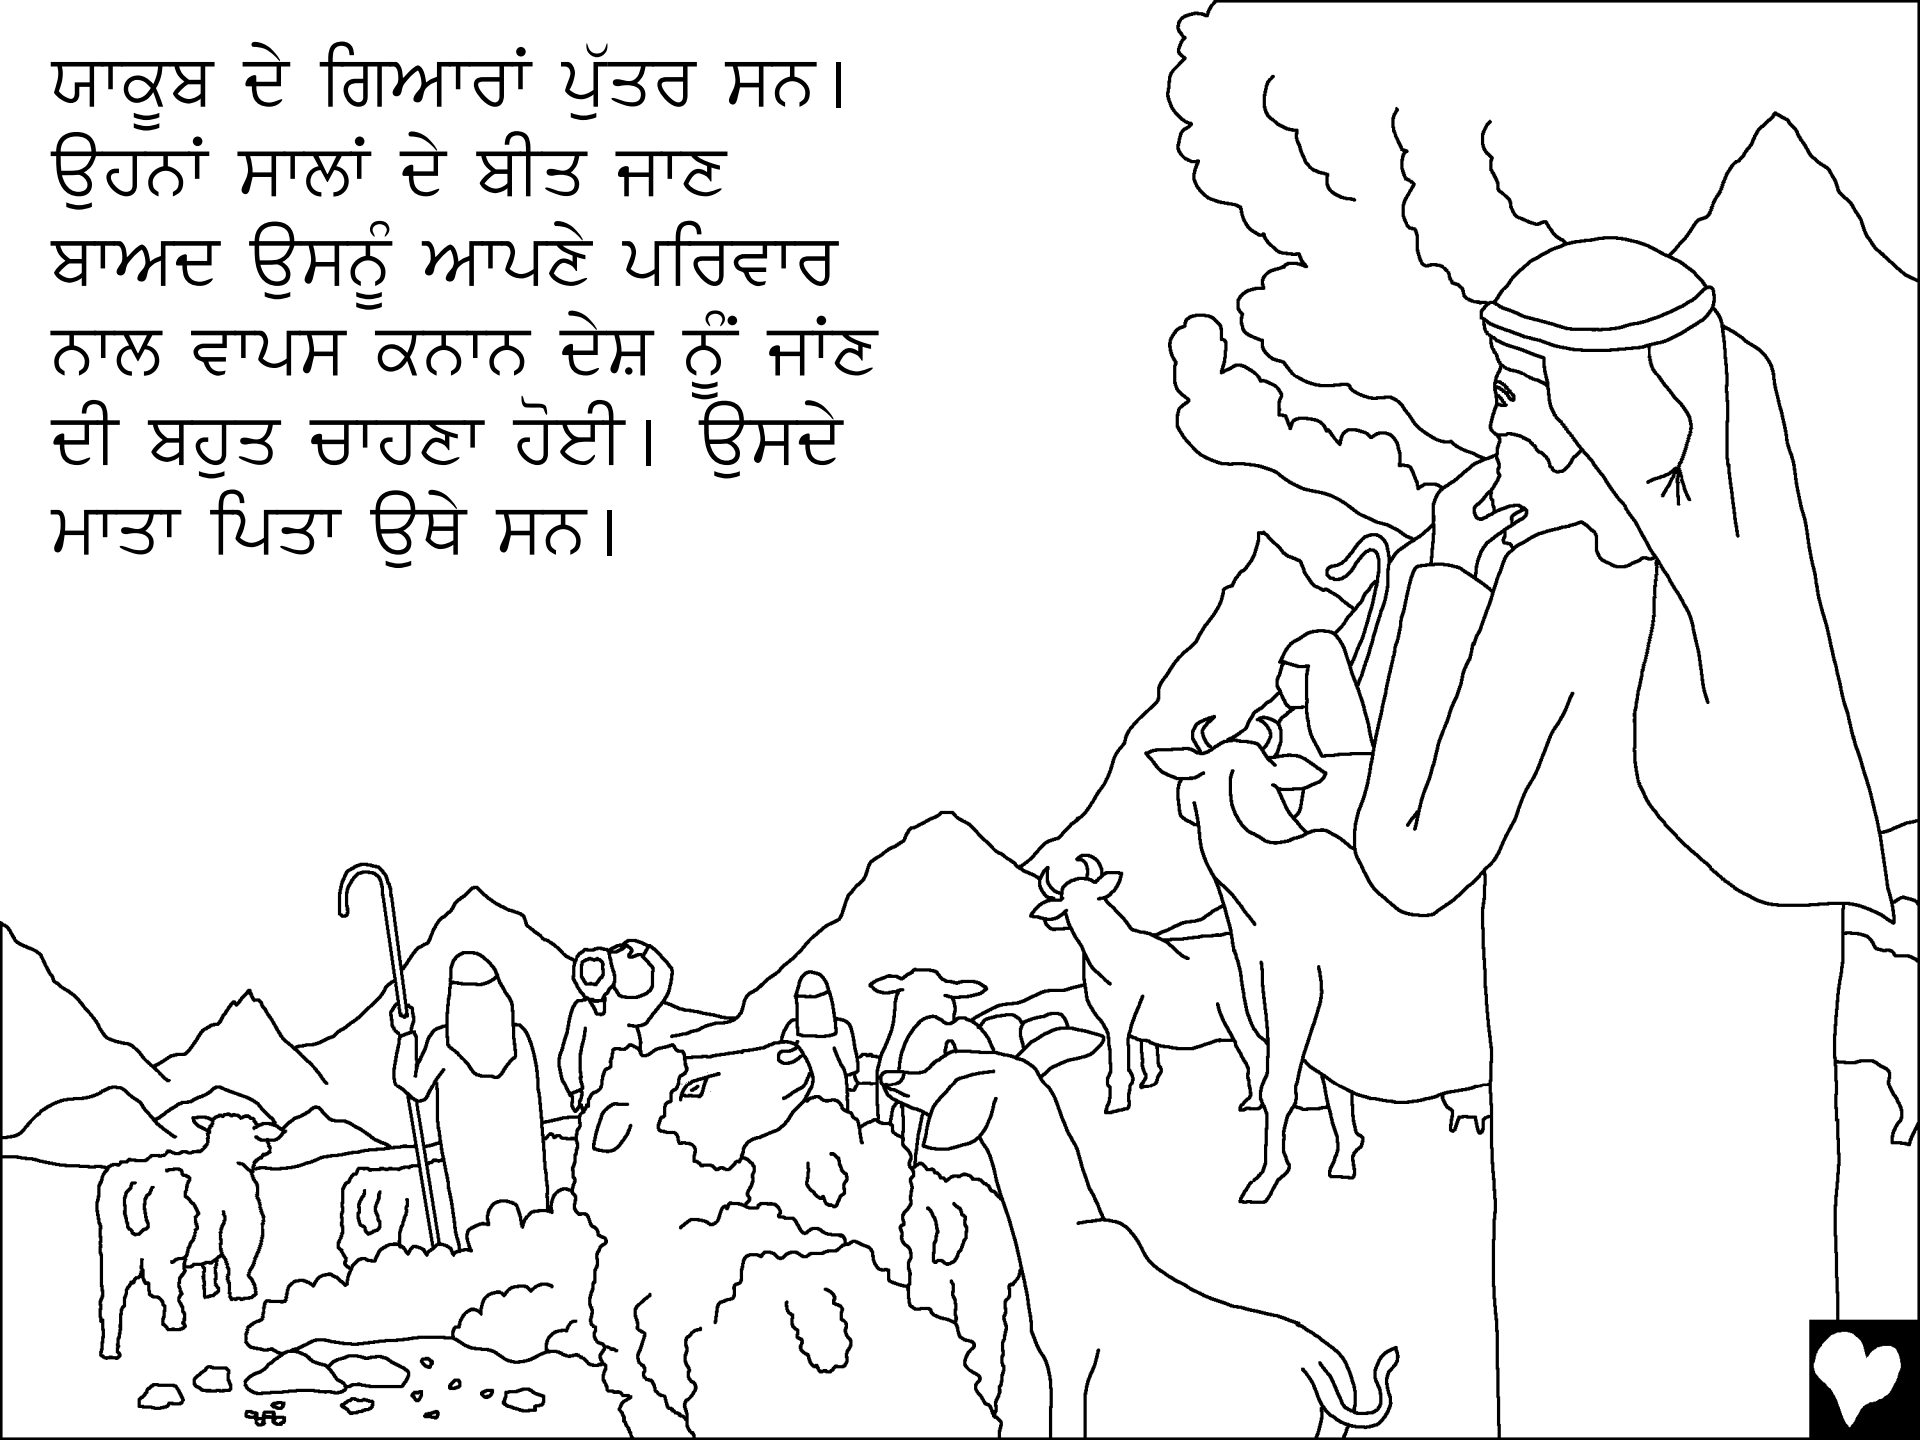 ਯਾਕੂਬ ਦੇ ਗਿਆਰਾਂ ਪੁੱਤਰ ਸਨ।
ਉਹਨਾਂ ਸਾਲਾਂ ਦੇ ਬੀਤ ਜਾਣ
ਬਾਅਦ ਉਸਨੂੰ ਆਪਣੇ ਪਰਿਵਾਰ
ਨਾਲ ਵਾਪਸ ਕਨਾਨ ਦੇਸ਼ ਨੂੰੰ ਜਾਂਣ
ਦੀ ਬਹੁਤ ਚਾਹਣਾ ਹੋਈ। ਉਸਦੇ
ਮਾਤਾ ਪਿਤਾ ਉਥੇ ਸਨ।